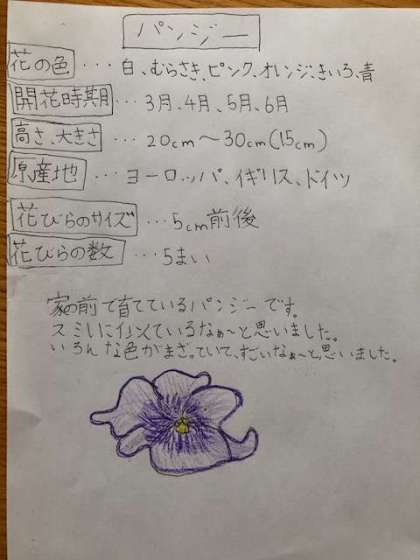 パンジー
花の色・・・・白、むらさき、ピンク、オレンジ、きいろ、青
開花時期・・・3月、4月、5月、6月
高さ、大きさ・・・20cm～30cm(15cm)
原産地・・・ヨーロッパ、イギリス、ドイツ
花びらのサイズ・・・5cm前後
花びらの数・・・5まい
家の前で育てているパンジーです。
スミレに似ているなぁ〜と思いました。
いろんな色がまざっていて、すごいなぁ〜と思いました。